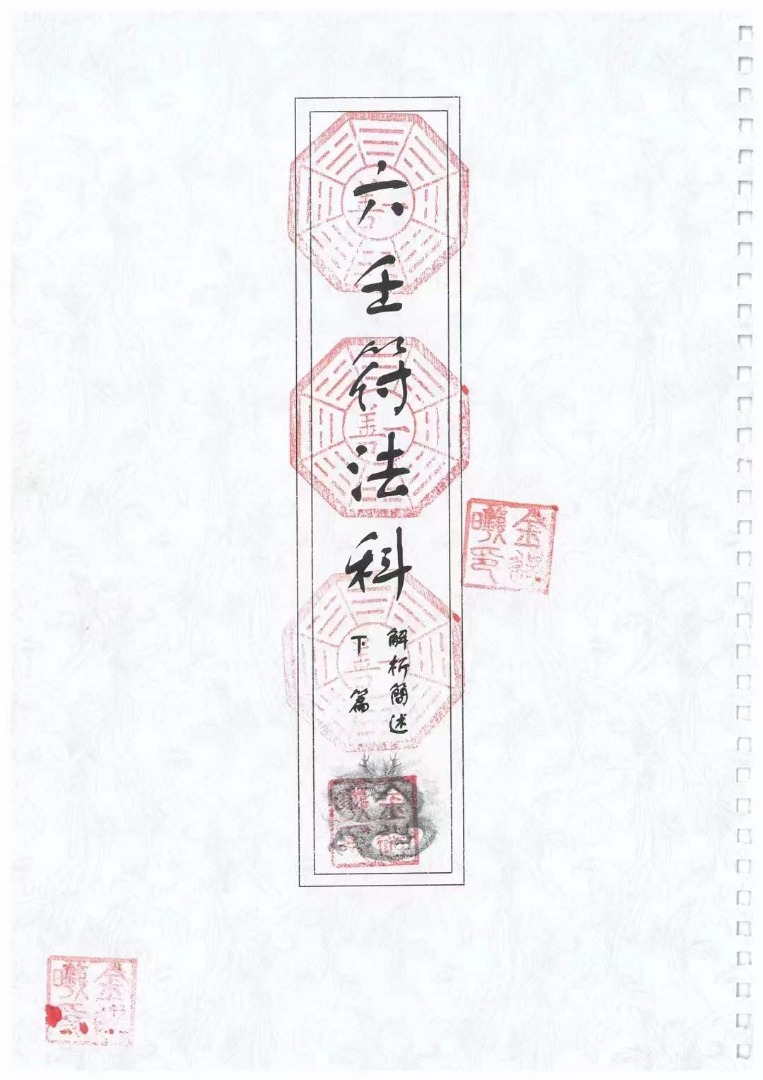 六壬符法科
解析簡述
下篇